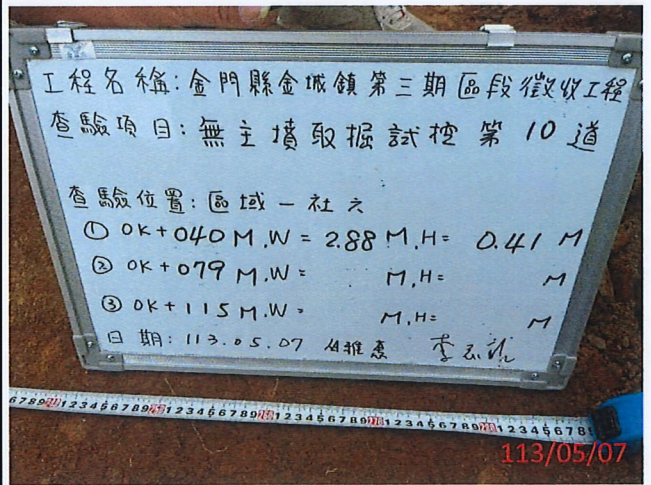 工程名稱:金門縣金城鎮第三期區段徵收工程
查驗項目:無主墳取掘試挖第10道
查驗位置:區域一社六
① 0K+040M.W=2.88M.H=0.41M
② 0K+079M.W=M.H=M
③ 0K+115M.W=M.H=M
日期:113.05.07
113/05/07